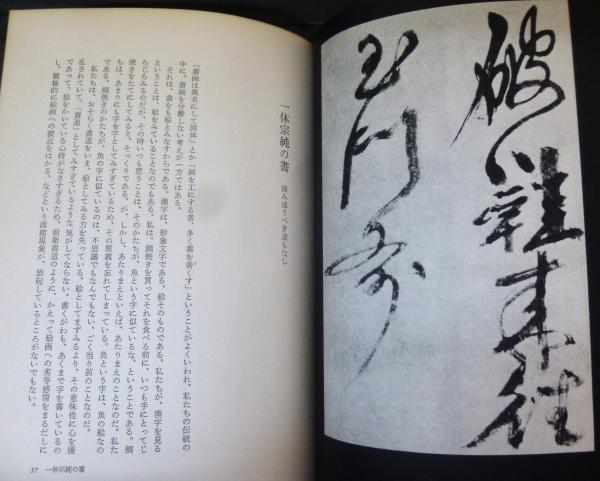 一休宗純の書　踏み通うべき道もなし
「書画は異名にして同体」とか「画を工にする者、多く書を善くす」ということがよくいわれ、私たちの伝統の
中に、書画を分離しない考えが一方ではある。
それは、書をも絵とみなすからである。漢字は、形象文字である。絵そのものである。私たちが、漢字を見る
ということは、絵をみていることなのでもある。私は、鯛焼きを買ってそれを食べる前に、いつも手にとってじ
ろじろみるのだが、その時いつも思うことは、そのかたちが、魚という字に似ているな、ということである。鯛
焼きをたてにしてみると、そっくりである。が、しかし、あたりまえといえば、あたりまえのことなのだ。私た
ちは、あまりにも字を字としてみすぎているため、その原義を忘れてしまっている。魚という字は、魚の絵なの
である。鯛焼きのかたちが、魚の字に似ているのは、不思議でもなんでもない、ごく当り前のことなのだ。
私たちは、おそらく書道をいま、絵としてみる力を失っている。絵としてまずみるより、その意味性に心を擾
乱されていて、「書道」としてみすぎているような気がしてならない。書くがわも、あくまで字を書いているの
であって、絵をかいている心持がなさすぎるため、前衛書道のように、かえって絵画への劣等感情をまるだしに
し、積極的に絵画への接近をはかる、などという滑稽現象が、起しているところがないでもない。
57　一休宗純の書